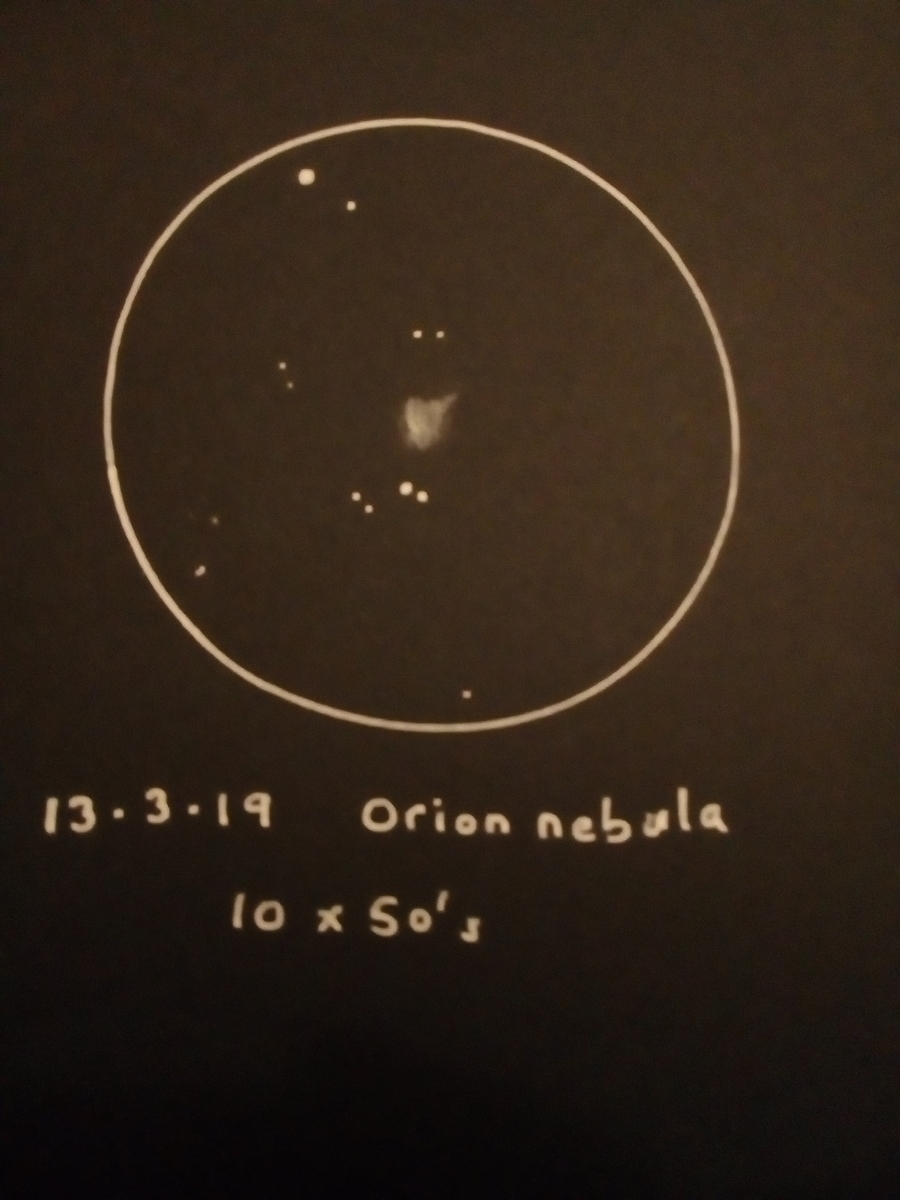 13·3·19 Orion nebula
10 x 50's